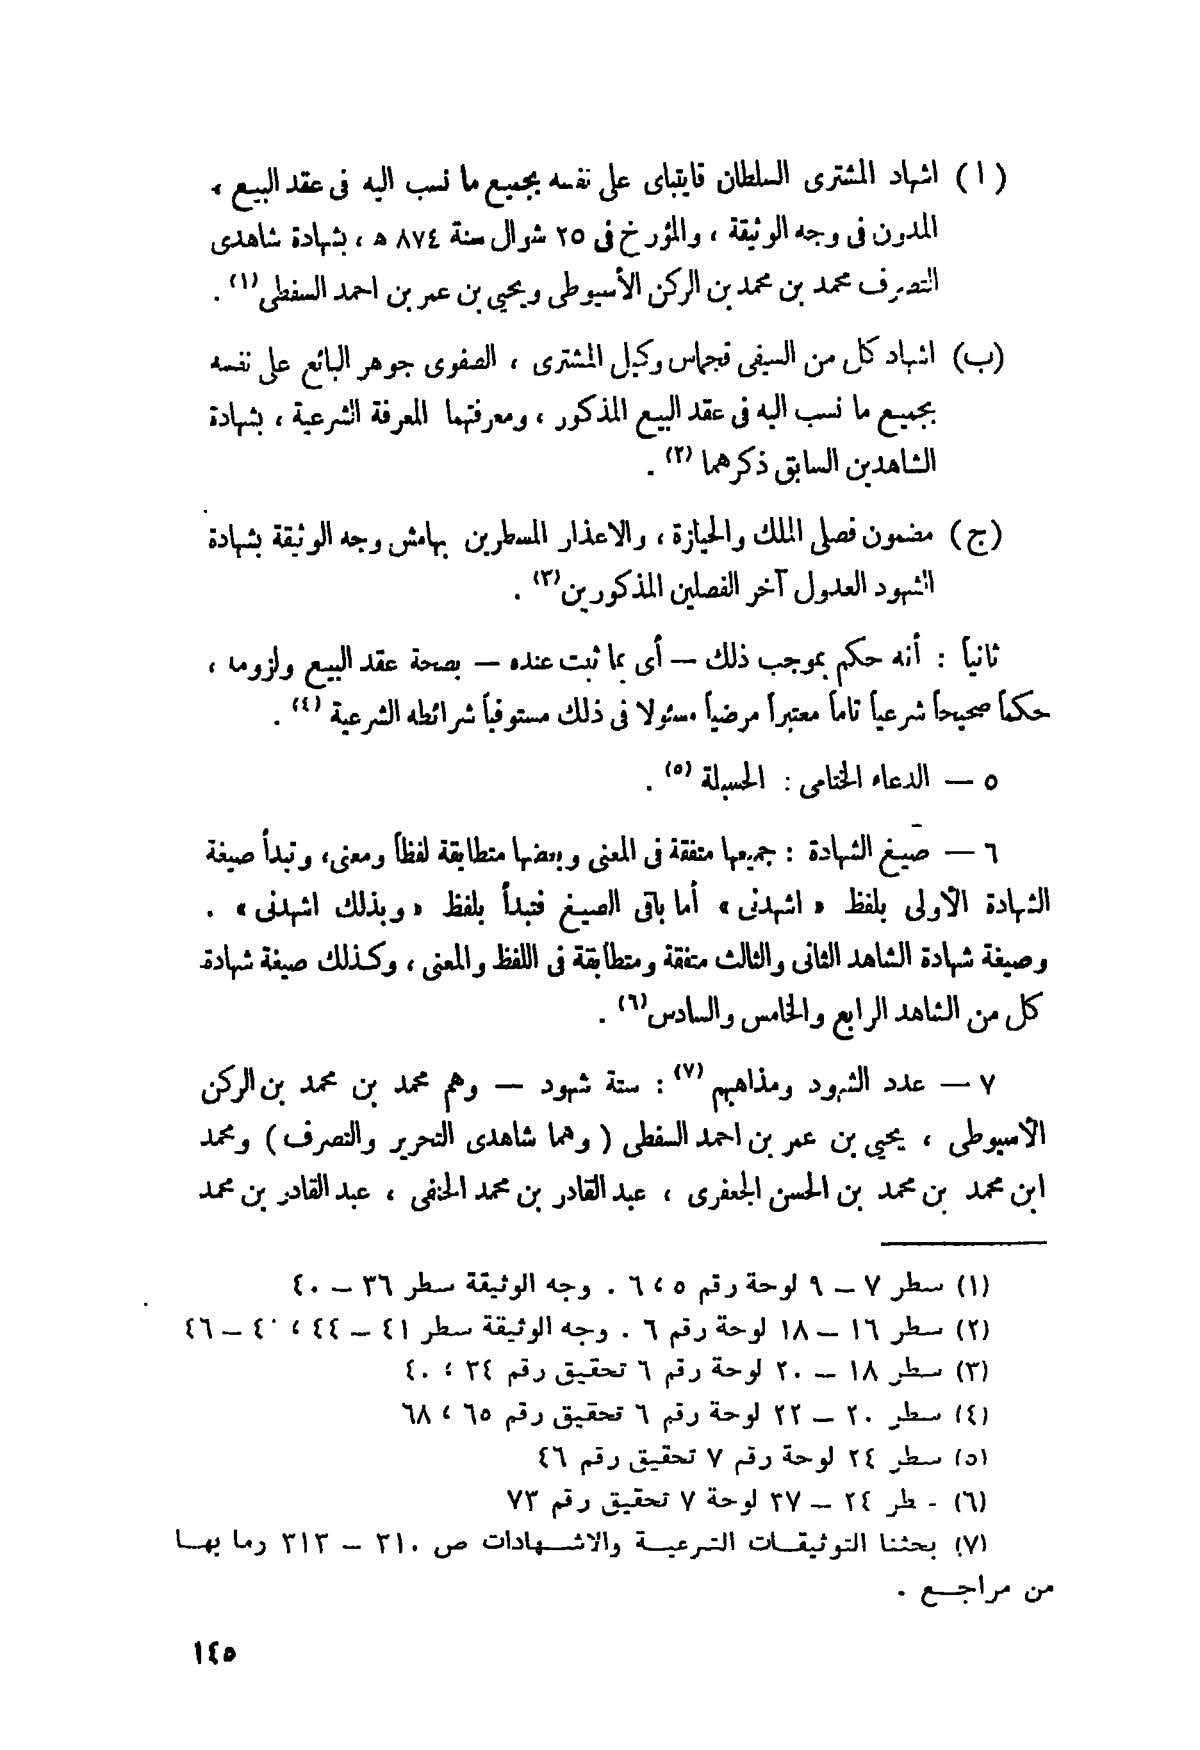 ( ا ) اشهاد المشترى السلطان قايتباى على نفسه بجميع ما نسب اليه فى عقد البيع ،
المدون فى وجه الوثيقة ، والمؤرخ فى ٢٥ شوال سنة ٨٧٤ ه ، بشهادة شاهدى
التصرف محمد بن محمد بن الركن الأسيوطى ويحيى بن عمر بن احمد السفطى (١) .
(ب) اشهاد كل من السيفى قجماس وكيل المشترى ، الصفوى جوهر البائع على نفسه
بجميع ما نسب اليه فى عقد البيع المذكور ، ومعرفتهما المعرفة الشرعية ، بشهادة
الشاهدين السابق ذكرهما (٢) .
(ج) مضمون فصلى الملك والحيازة ، والاعذار المسطرين بهامش وجه الوثيقة بشهادة
الشهود العدول آخر الفصلين المذكورين (٣) .
ثانياً : أنه حكم بموجب ذلك — أى بما ثبت عنده — بصحة عقد البيع ولزومه ،
حكماً صحيحاً شرعياً تاماً معتبراً مرضياً مسئولا فى ذلك مستوفياً شرائطه الشرعية (٤) .
٥ — الدعاء الختامى : الحسبلة (٥) .
٦ — صيغ الشهادة : جميعها متفقة فى المعنى وبعضها متطابقة لفظاً ومعنى، وتبدأ صيغة
الشهادة الأولى بلفظ « اشهدنى » أما باقى الصيغ فتبدأ بلفظ « وبذلك اشهدنى » .
وصيغة شهادة الشاهد الثانى والثالث متفقة ومتطابقة فى اللفظ والمعنى ، وكذلك صيغة شهادة
كل من الشاهد الرابع والخامس والسادس (٦) .
٧ — عدد الشهود ومذاهبهم (٧) : ستة شهود — وهم محمد بن محمد بن الركن
الأسيوطى ، يحيى بن عمر بن احمد السفطى ( وهما شاهدى التحرير والتصرف ) ومحمد
ابن محمد بن محمد بن الحسن الجعفرى ، عبد القادر بن محمد الحنفى ، عبد القادر بن محمد
(١) سطر ٧ — ٩ لوحة رقم ٥ ، ٦ . وجه الوثيقة سطر ٣٦ — ٤٠
(٢) سطر ١٦ — ١٨ لوحة رقم ٦ . وجه الوثيقة سطر ٤١ — ٤٤ ، — ٤٦
(٣) سطر ١٨ — ٢٠ لوحة رقم ٦ تحقيق رقم ٣٤ ، ٤٠
(٤) سطر ٢٠ — ٢٢ لوحة رقم ٦ تحقيق رقم ٦٥ ، ٦٨
(٥) سطر ٢٤ لوحة رقم ٧ تحقيق رقم ٤٦
(٦) سطر ٢٤ — ٢٧ لوحة ٧ تحقيق رقم ٧٣
(٧) بحثنا التوثيقات الشرعية والاشهادات ص ٣١٠ — ٣١٣ وما بها
من مراجع .
١٤٥